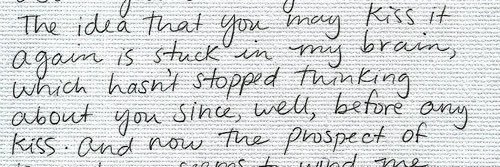 The idea that you may kiss it
again is stuck in my brain,
which hasn't stopped thinking
about you since, well, before any
kiss. And now the prospect of
seems to wind me